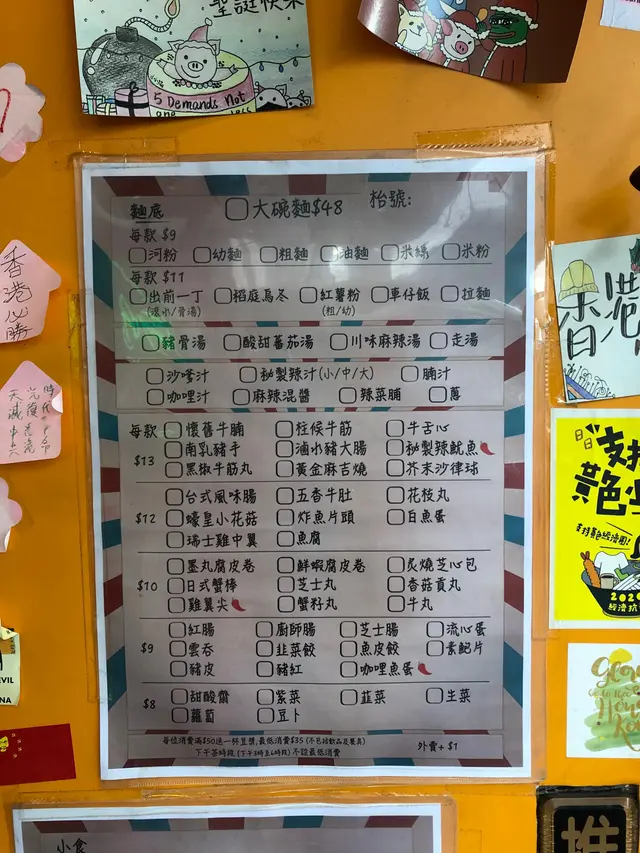 聖誕快樂
5 Demands Not
one less
麵底 大碗麵$48 枱號:
每款 $9
河粉 幼麵 粗麵 油麵 米綫 米粉
每款 $11
出前一丁 稻庭烏冬 紅薯粉 車仔飯 拉麵
(粗/幼)
豬骨湯 酸甜蕃茄湯 川味麻辣湯 走湯
沙嗲汁 秘製辣汁(小/中/大) 腩汁
咖哩汁 麻辣混醬 辣菜脯 蔥
每款 懷舊牛腩 柱侯牛筋 牛舌心
$13 南乳豬手 滷水豬大腸 秘製辣魷魚
黑椒牛筋丸 黃金麻吉燒 芥末沙律球
台式風味腸 五香牛肚 花枝丸
$12 蠔皇小花菇 炸魚片頭 白魚蛋
瑞士雞中翼 魚腐
墨丸腐皮卷 鮮蝦腐皮卷 炙燒芝心包
$10 日式蟹棒 芝士丸 香菇貢丸
雞翼尖 蟹籽丸 牛丸
紅腸 廚師腸 芝士腸 流心蛋
$9 雲吞 韮菜餃 魚皮餃 素鮑片
豬皮 豬紅 咖哩魚蛋
$8 甜酸齋 紫菜 韮菜 生菜
蘿蔔 豆卜
每位消費滿$50送一杯豆漿,最低消費$35 (不包括飲品及餐具) 外賣+ $1
下午茶時段 (下午3時至6時段) 不設最低消費
小食
香港
必勝
天滅中共
香港
支持
黃色
支持黃色經濟圈!
2020
經濟抗
Glory
to
Hong
Kong
EVIL
INA
推